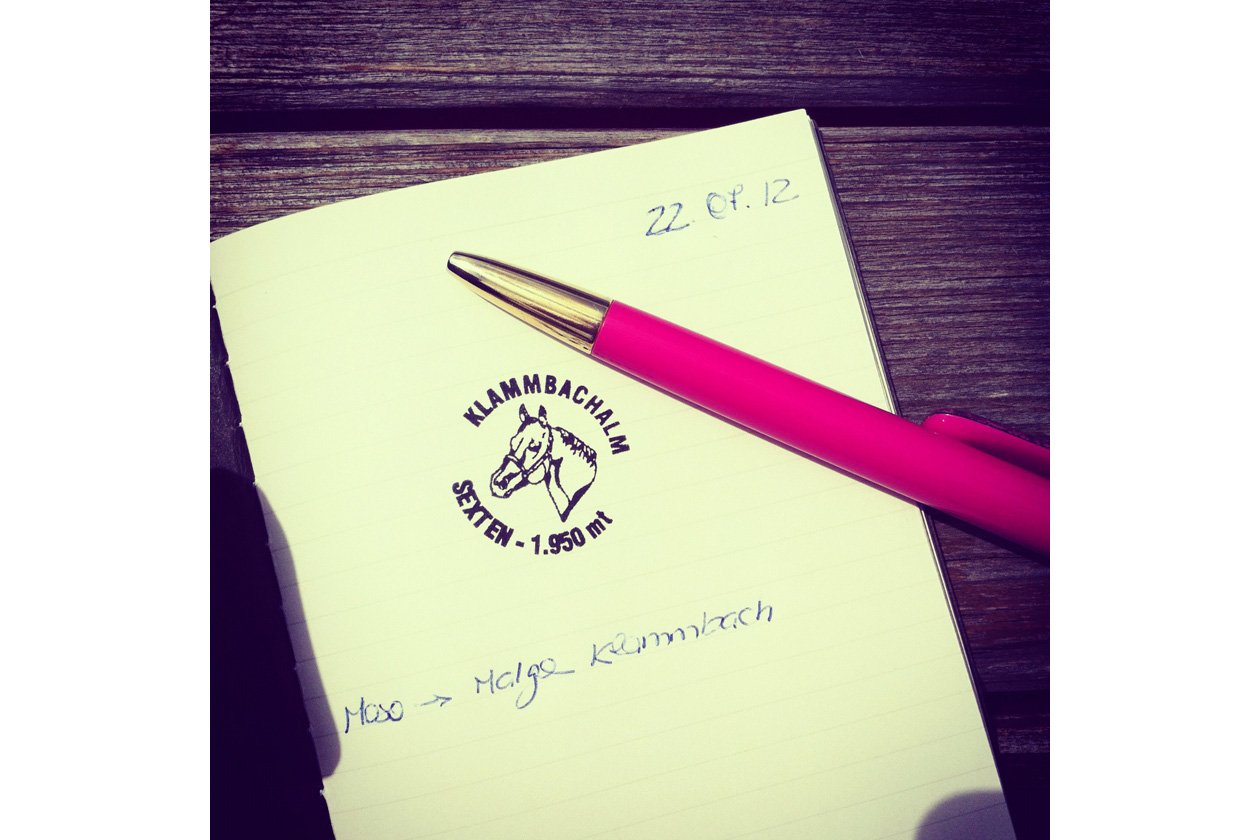 22. 07. 12
KLAMMBACHALM
SEXTEN - 1.950 mt
Moso → Malga Klammbach